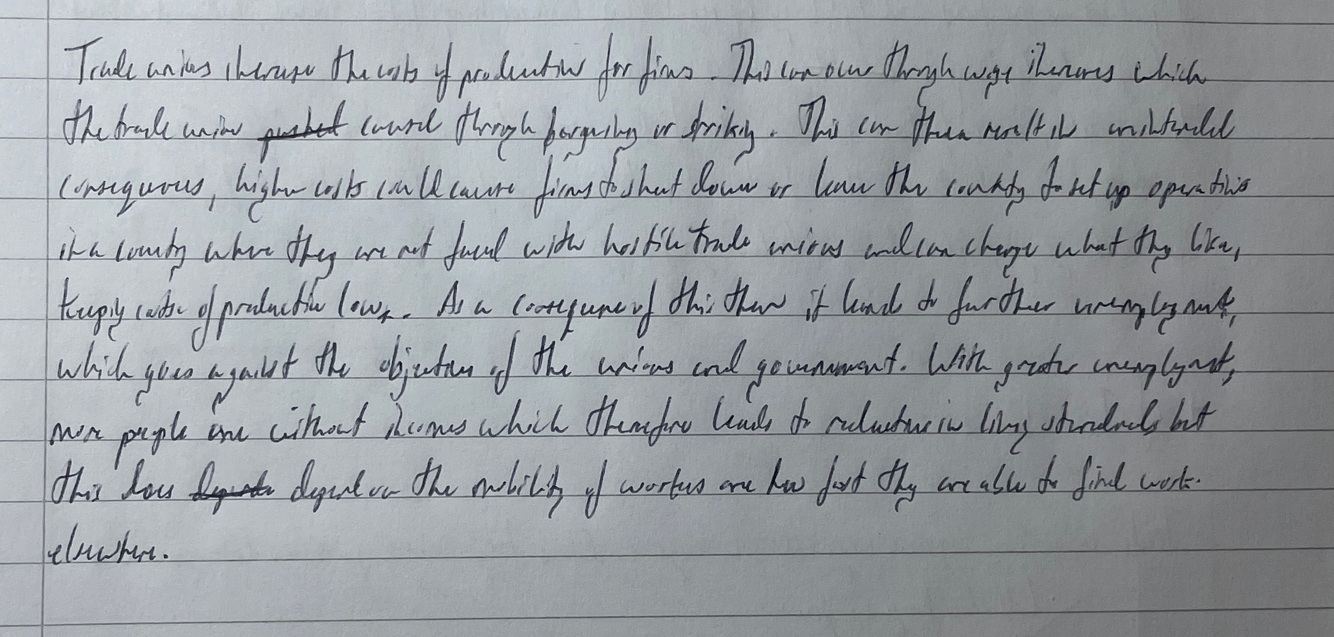 Trade unions increase the costs of production for firms. This can occur through wage increases which
the trade union pushed caused through barganing or striking. This can then result in unintended
consequences, higher costs could cause firms to shut down or leave the country to set up operations
in a country where they are not faced with hostile trade unions and can charge what they like,
keeping costs of production low. As a consequence of this then it leads to further unemployment,
which goes against the objectives of the unions and government. With greater unemployment,
more people are without incomes which therefore leads to reductions in living standards but
this does depends depend on the mobility of workers are how fast they are able to find work.
elsewhere.